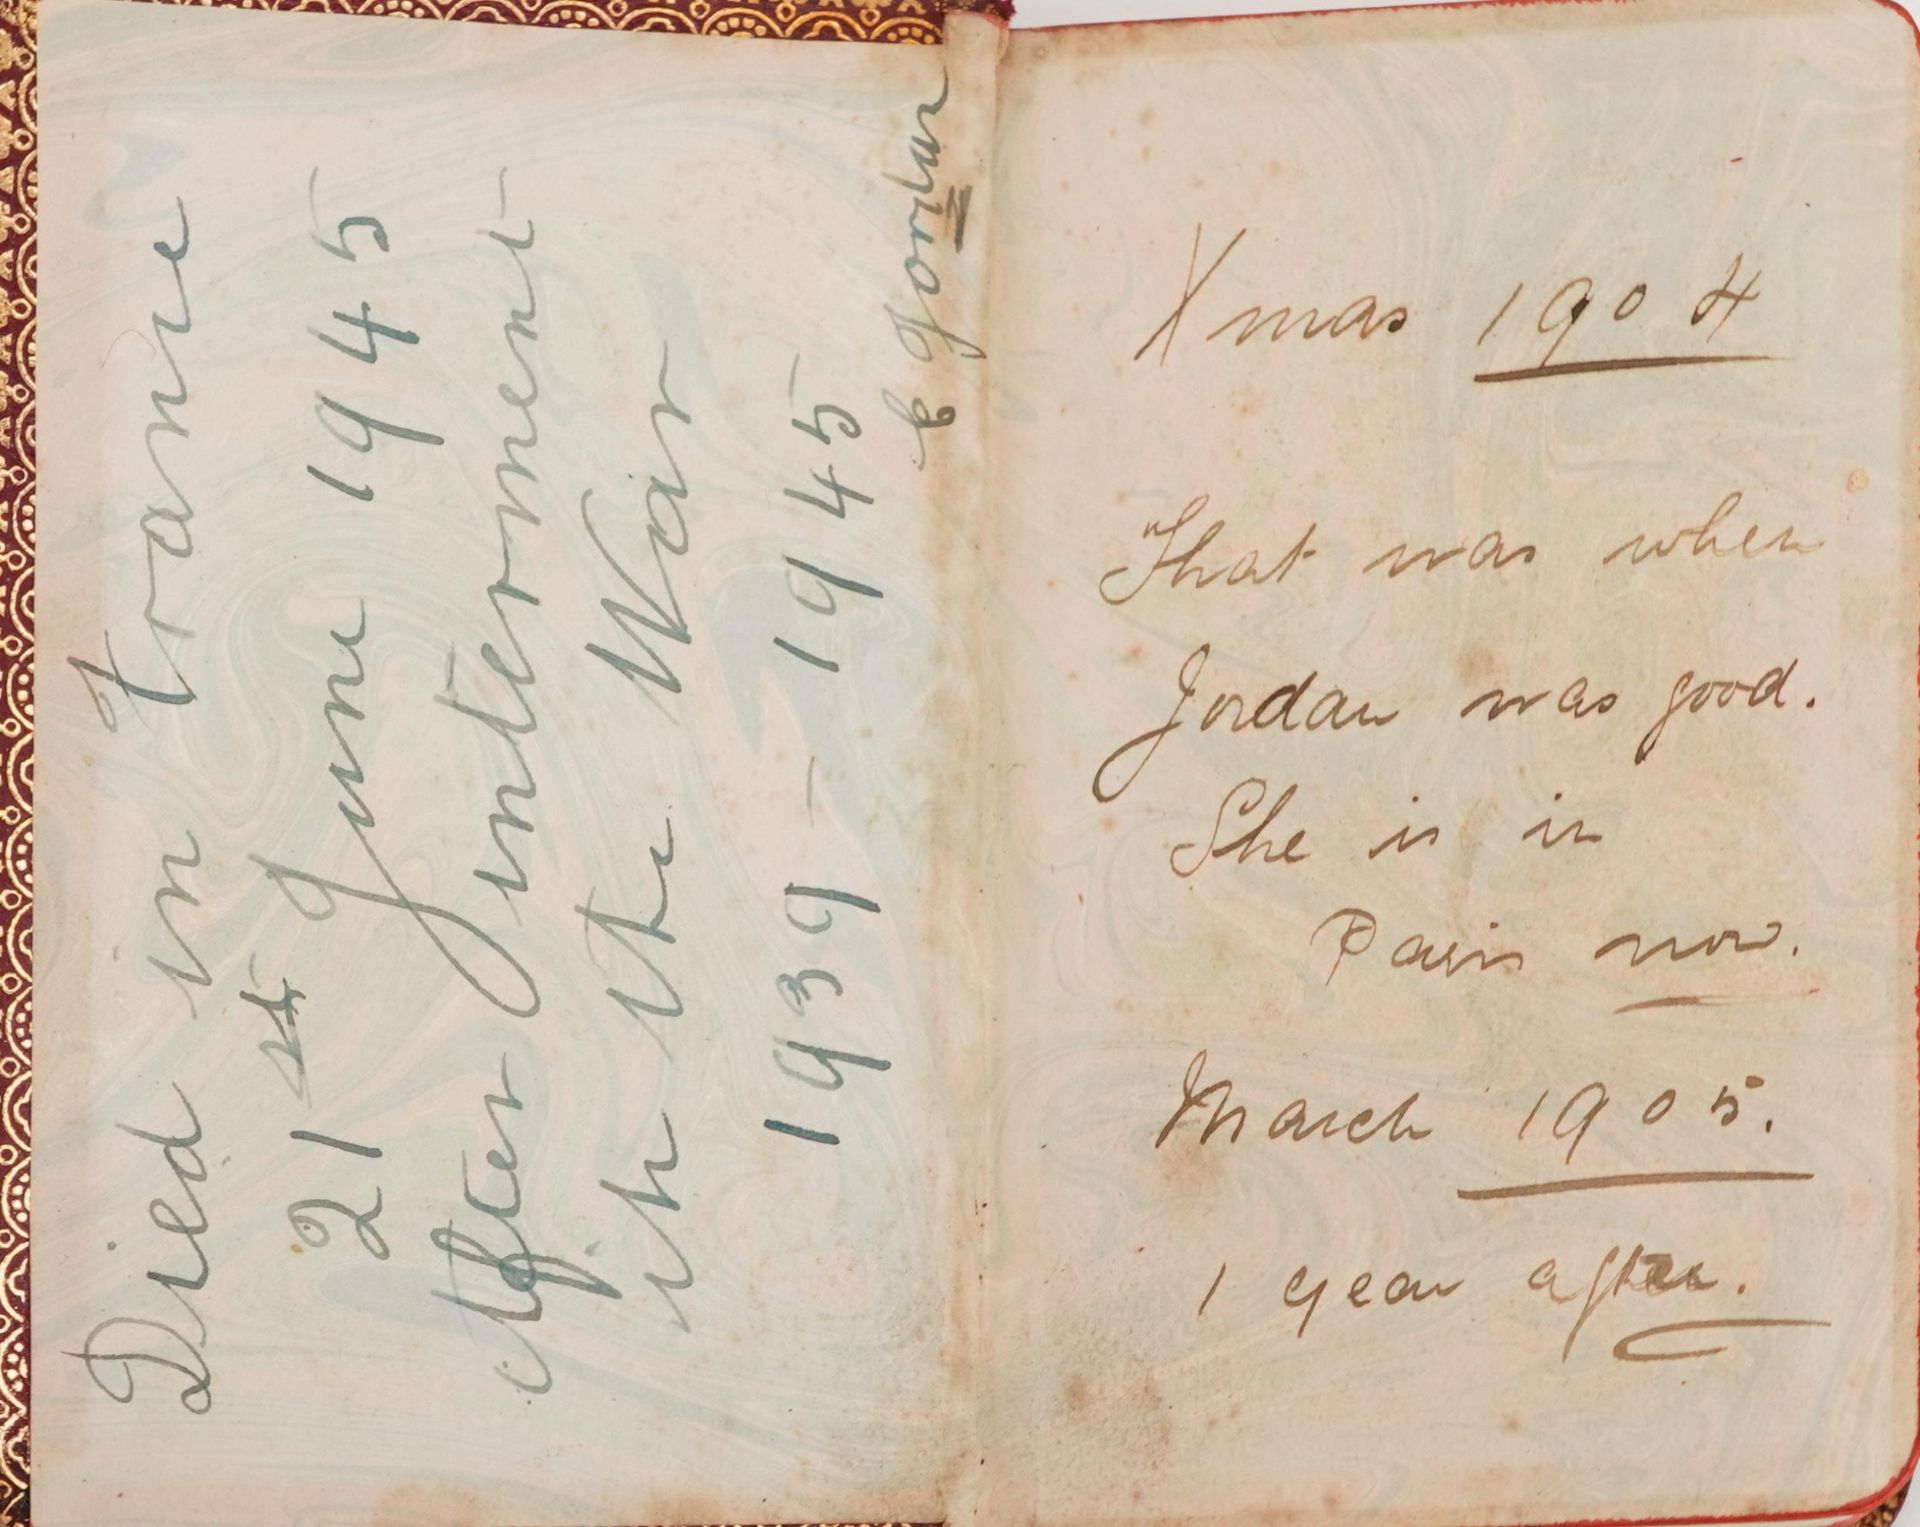 Died in France
21st June 1945
After Internment
in the War
1939 - 1945
C Jordan
Xmas 1904
That was when
Jordan was good.
She is in
Paris now.
March 1905.
1 year after.